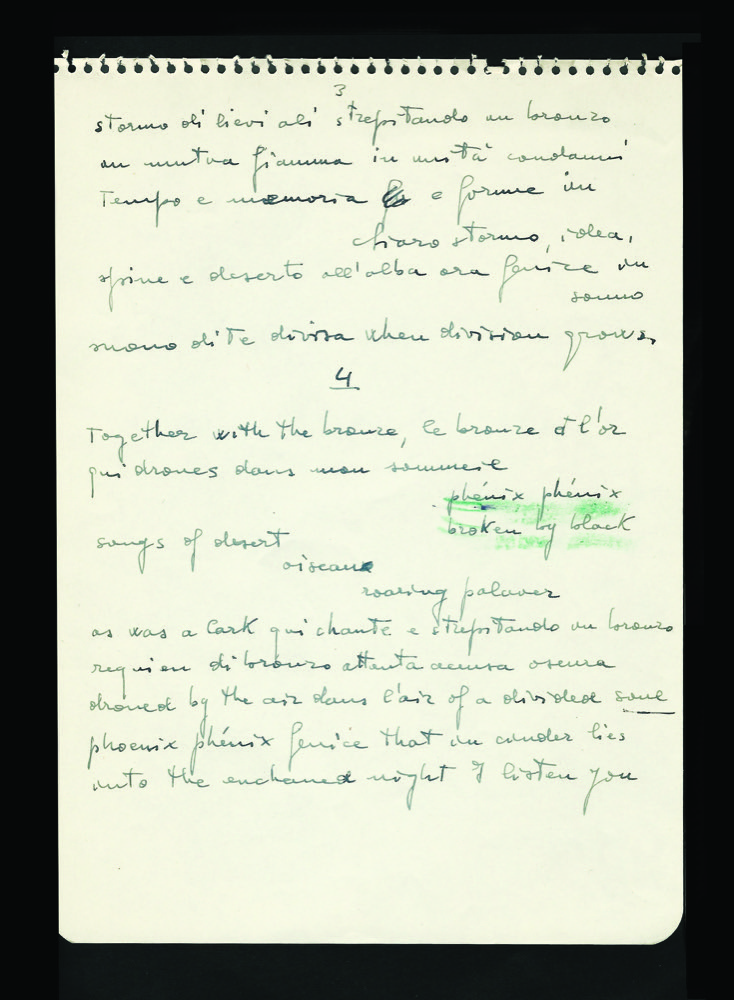 3
stormo di lievi ali strepitando un bronzo
un mutua fiamma in unità condanni
Tempo e memoria e forme in
chiaro stormo, idea,
spine e deserto all'alba ora fenice in
sonno
suono di te divisa when division grows,
4
Together with the bronze, le bronze et l'or
qui drones dans mon sommeil
phénix phénix
broken by black
songs of desert
oiseaux
roaring palaver
as was a lark qui chante e strepitando un bronzo
requiem di bronzo attenta accusa oscura
droned by the air dans l'air of a divided soul
phoenix phénix fenice that in cinder lies
into the enchanted night I listen you